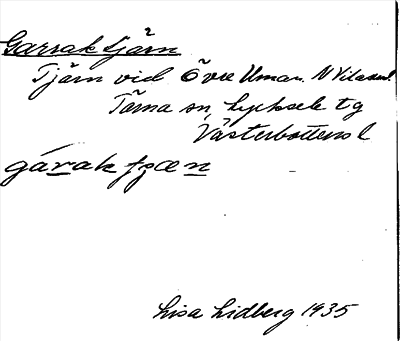 Garraktjärn
Tjärn vid Övre Uman. N Vilasund
Tärna sn, Lycksele tg
Västerbottens l
gárak tjæn
Lisa Lidberg 1935